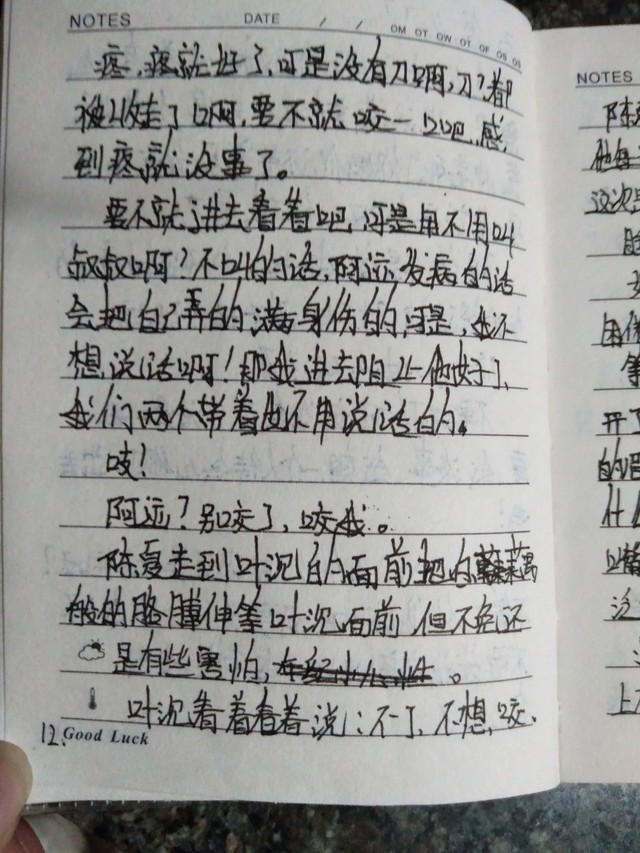 NOTES DATE / /
疼，疼就好了，可是没有刀啊，刀子都
被收走了啊，要不就咬一口吧，感
到疼就没事了。
要不就进去看着吧，可是用不用叫
叔叔啊？不叫的话，阿远发病的话
会把自己弄的满身伤的，可是，我不
想说话啊！那我进去陪北他好了，
我们两个带着也不用说话的。
吱！
阿远？别咬了，咬我。
陈爱走到叶沉的面前把的藕
般的胳膊伸等叶沉面前，但不免还
是有些害怕，。
叶沉看着看着说：不了，不想，咬
12. Good Luck
NOTES
陈
他
这次
开了
的
什么
上